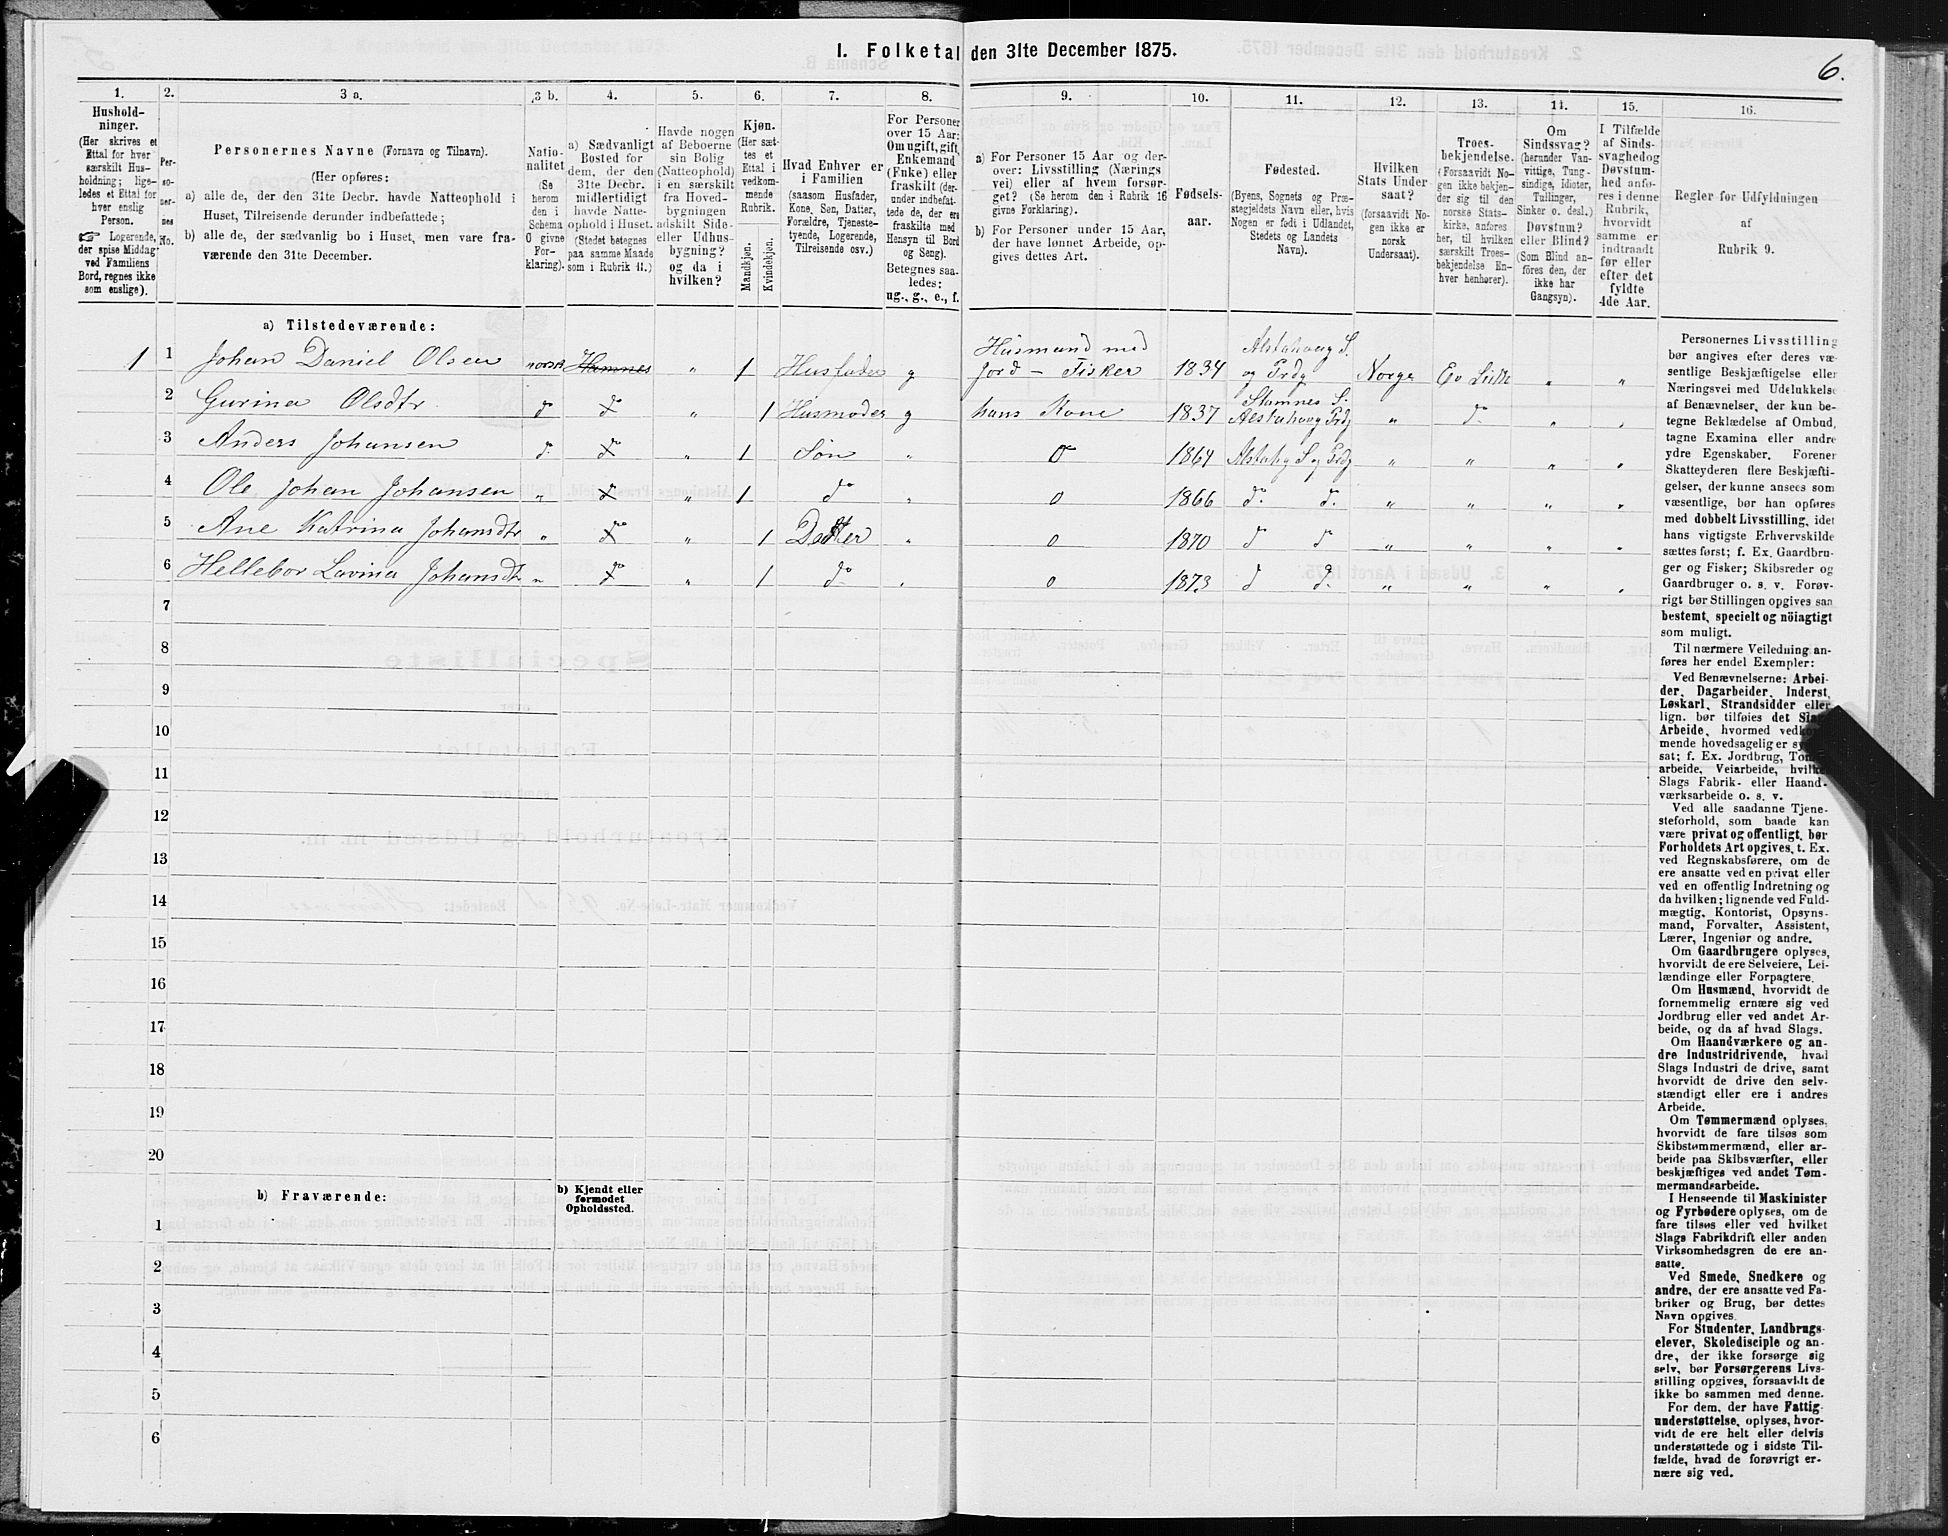 1. Folketal den 31te December 1875.
6.
1.
Hushold-
ninger.
(Her skrives et
Ettal for hver
særskilt Hus-
holdning; lige-
ledes et Ettal for
hver enslig
Person.
☞ Logerende,
der spise Middag
ved Familiens
Bord, regnes ikke
som enslige).
2.
Per-
so-
ner-
nes
No.
3 a.
Personernes Navne (Fornavn og Tilnavn).
(Her opføres:
a) alle de, der den 31te Decbr. havde Natteophold i
Huset, Tilreisende derunder indbefattede;
b) alle de, der sædvanlig bo i Huset, men vare fra-
værende den 31te December.
3 b.
Natio-
nalitet
(Se
herom
den i
Schema
O givne
For-
klaring).
4.
a) Sædvanligt
Bosted for
dem, der den
31te Decbr.
midlertidigt
havde Natte-
ophold i Huset.
(Stedet betegnes
paa samme Maade
som i Rubrik 11.)
5.
Havde nogen
af Beboerne
sin Bolig
(Natteophold)
i en særskilt
fra Hoved-
bygningen
adskilt Side-
eller Udhus-
bygning?
og da i
hvilken?
6.
Kjøn.
(Her sæt-
tes et
Ettal i
vedkom-
mende
Rubrik.
Mandkjøn.
Kvindekjøn.
7.
Hvad Enhver er
i Familien
(saasom Husfader,
Kone, Søn, Datter,
Forældre, Tjeneste-
tyende, Logerende,
Tilreisende osv.)
8.
For Personer
over 15 Aar:
Om ugift, gift,
Enkemand
(Enke) eller
fraskilt (der-
under indbefat-
tede de, der ere
fraskilte med
Hensyn til Bord
og Seng).
Betegnes saa-
ledes:
ug., g., e., f.
9.
a) For Personer 15 Aar og der-
over: Livsstilling (Nærings-
vei) eller af hvem forsør-
get? (Se herom den i Rubrik 16
givne Forklaring).
b) For Personer under 15 Aar,
der have lønnet Arbeide, op-
gives dettes Art.
10.
Fødsels-
aar.
11.
Fødested.
(Byens, Sognets og Præ-
stegjeldets Navn eller, hvis
Nogen er født i Udlandet,
Stedets og Landets
Navn).
12.
Hvilken
Stats Under-
saat?
(forsaavidt No-
gen ikke er
norsk
Undersaat).
13.
Troes-
bekjendelse.
(Forsaavidt No-
gen ikke bekjen-
der sig til den
norske Stats-
kirke, anføres
her, til hvilken
særskilt Troes-
bekjendelse En-
hver henhører).
14.
Om
Sindssvag?
(herunder Van-
vittige, Tung-
sindige, Idioter,
Tullinger,
Sinker o. desl.)
Døvstum?
eller Blind?
(Som Blind an-
føres den, der
ikke har
Gangsyn).
15.
I Tilfælde
af Sinds-
svaghed og
Døvstum-
hed anfø-
res i denne
Rubrik,
hvorvidt
samme er
indtraadt
før eller
efter det
fyldte
4de Aar.
16.
Regler for Udfyldningen
af
Rubrik 9.
a) Tilstedeværende:
1 1 Johan Daniel Olsen norsk Hamnes " 1 Husfader g Husmand med Jord - Fisker 1834 Alstahoug S. og Prdg Norge Ev Luth " "
2 Gurina Olsdtr d do " 1 Husmoder g hans Kone 1837 Stamnes S. Alstahoug Prdg " do " "
3 Anders Johansen d. do " 1 Søn " 0 1864 Alstahg S og Prdg " " " "
4 Ole Johan Johansen " do " 1 do " 0 1866 do. do. " " " "
5 Ane Katrina Johansdtr " do " 1 Datter " 0 1870 d d " " " "
6 Hellebor Lavina Johansdtr " do " 1 do " 0 1873 d d. " " " "
7
8
9
10
11
12
13
14
15
16
17
18
19
20
b) Fraværende:
b) Kjendt eller
formodet
Opholdssted.
1
2
3
4
5
6
Personernes Livsstilling
bør angives efter deres væ-
sentlige Beskjæftigelse eller
Næringsvei med Udelukkelse
af Benævnelser, der kun be-
tegne Beklædelse af Ombud,
tagne Examina eller andre
ydre Egenskaber. Forener
Skatteyderen flere Beskjæfti-
gelser, der kunne ansees som
væsentlige, bør han opføres
med dobbelt Livsstilling, idet
hans vigtigste Erhvervskilde
sættes først; f. Ex. Gaardbru-
ger og Fisker; Skibsreder og
Gaardbruger o. s. v. Forøv-
rigt bør Stillingen opgives saa
bestemt, specielt og nöiagtigt
som muligt.
Til nærmere Veiledning an-
føres her endel Exempler:
Ved Benævnelserne: Arbei-
der, Dagarbeider, Inderst,
Løskarl, Strandsidder eller
lign. bør tilføies det Slags
Arbeide, hvormed vedkom-
mende hovedsagelig er syssel-
sat; f. Ex. Jordbrug, Tomte-
arbeide, Veiarbeide, hvilket
Slags Fabrik- eller Haand-
værksarbeide o. s. v.
Ved alle saadanne Tjene-
steforhold, som baade kan
være privat og offentligt, bør
Forholdets Art opgives, t. Ex.
ved Regnskabsførere, om de
ere ansatte ved en privat eller
ved en offentlig Indretning og
da hvilken; lignende ved Fuld-
mægtig, Kontorist, Opsyns-
mand, Forvalter, Assistent,
Lærer, Ingeniør og andre.
Om Gaardbrugere oplyses,
hvorvidt de ere Selveiere, Lei-
lændinge eller Forpagtere.
Om Husmænd, hvorvidt de
fornemmelig ernære sig ved
Jordbrug eller ved andet Ar-
beide, og da af hvad Slags.
Om Haandværkere og an-
dre Industridrivende, hvad
Slags Industri de drive, samt
hvorvidt de drive den selv-
stændigt eller ere i andres
Arbeide.
Om Tømmermænd oplyses,
hvorvidt de fare tilsøs som
Skibstømmermænd, eller ar-
beide paa Skibsværfter, eller
beskjæftiges ved andet Tøm-
mermandsarbeide.
I Henseende til Maskinister
og Fyrbødere oplyses, om de
fare tilsøs eller ved hvilket
Slags Fabrikdrift eller anden
Virksomhedsgren de ere an-
satte.
Ved Smede, Snedkere og
andre, der ere ansatte ved Fa-
briker og Brug, bør dettes
Navn opgives.
For Studenter, Landbrugs-
elever, Skoledisciple og an-
dre, der ikke forsørge sig
selv, bør Forsørgerens Livs-
stilling opgives, forsaavidt de
ikke bo sammen med denne.
For dem, der have Fattig-
understøttelse, oplyses, hvor-
vidt de ere helt eller delvis
understøttede og i sidste Til-
fælde, hvad de forøvrigt er-
nære sig ved.